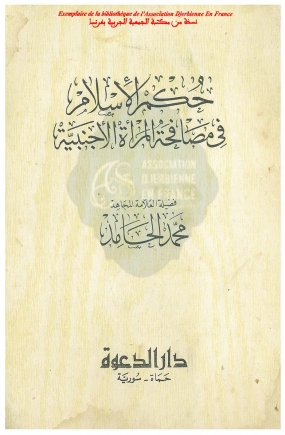 Exemplaire de la bibliothèque de l'Association Djerbienne En France
نسخة من مكتبة الجمعية الجربية بفرنسا
حُكم الإسلام
في مصافحة المرأة الأجنبية
ASSOCIATION
DJERBIENNE
EN FRANCE
فضيلة العلامة المجاهد
محمد الحامد
دار الدعوة
حماة - سورية